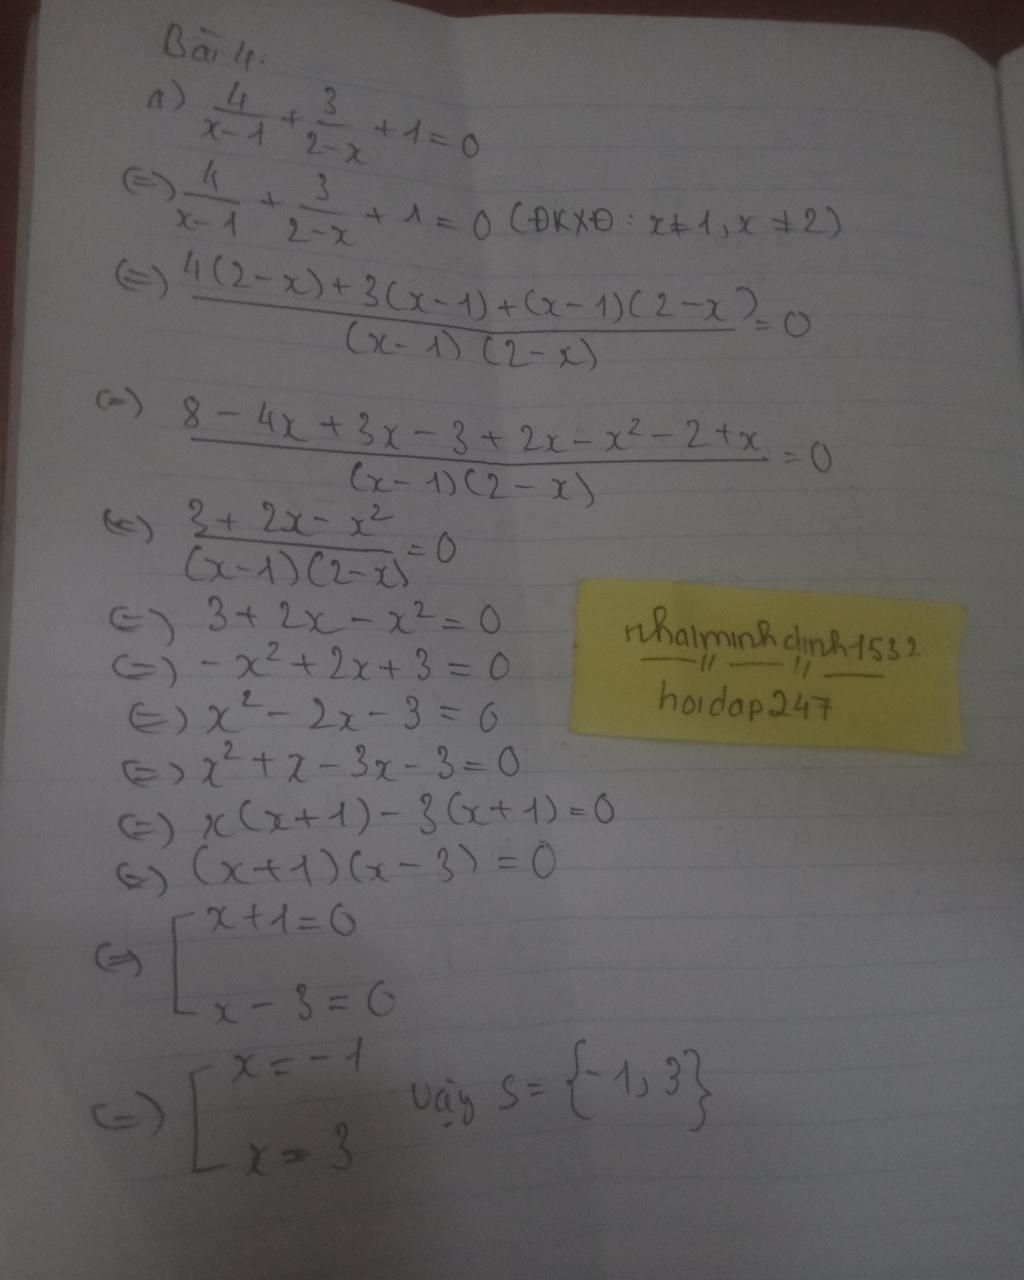 Bài 4:
a) 4/(x-1) + 3/(2-x) + 1 = 0
(=) 4/(x-1) + 3/(2-x) + 1 = 0 (ĐKXĐ : x ≠ 1, x ≠ 2)
(=) (4(2-x) + 3(x-1) + (x-1)(2-x))/((x-1)(2-x)) = 0
(=) (8 - 4x + 3x - 3 + 2x - x² - 2 + x)/((x-1)(2-x)) = 0
(=) (3 + 2x - x²)/((x-1)(2-x)) = 0
(=) 3 + 2x - x² = 0
(=) - x² + 2x + 3 = 0
(=) x² - 2x - 3 = 0
(=) x² + x - 3x - 3 = 0
(=) x(x+1) - 3(x+1) = 0
(=) (x+1)(x-3) = 0
(=) [ x+1 = 0
x - 3 = 0
(=) [ x = -1
x = 3
Vậy S = {-1, 3}
nhalminhdinh1532
hoidap247